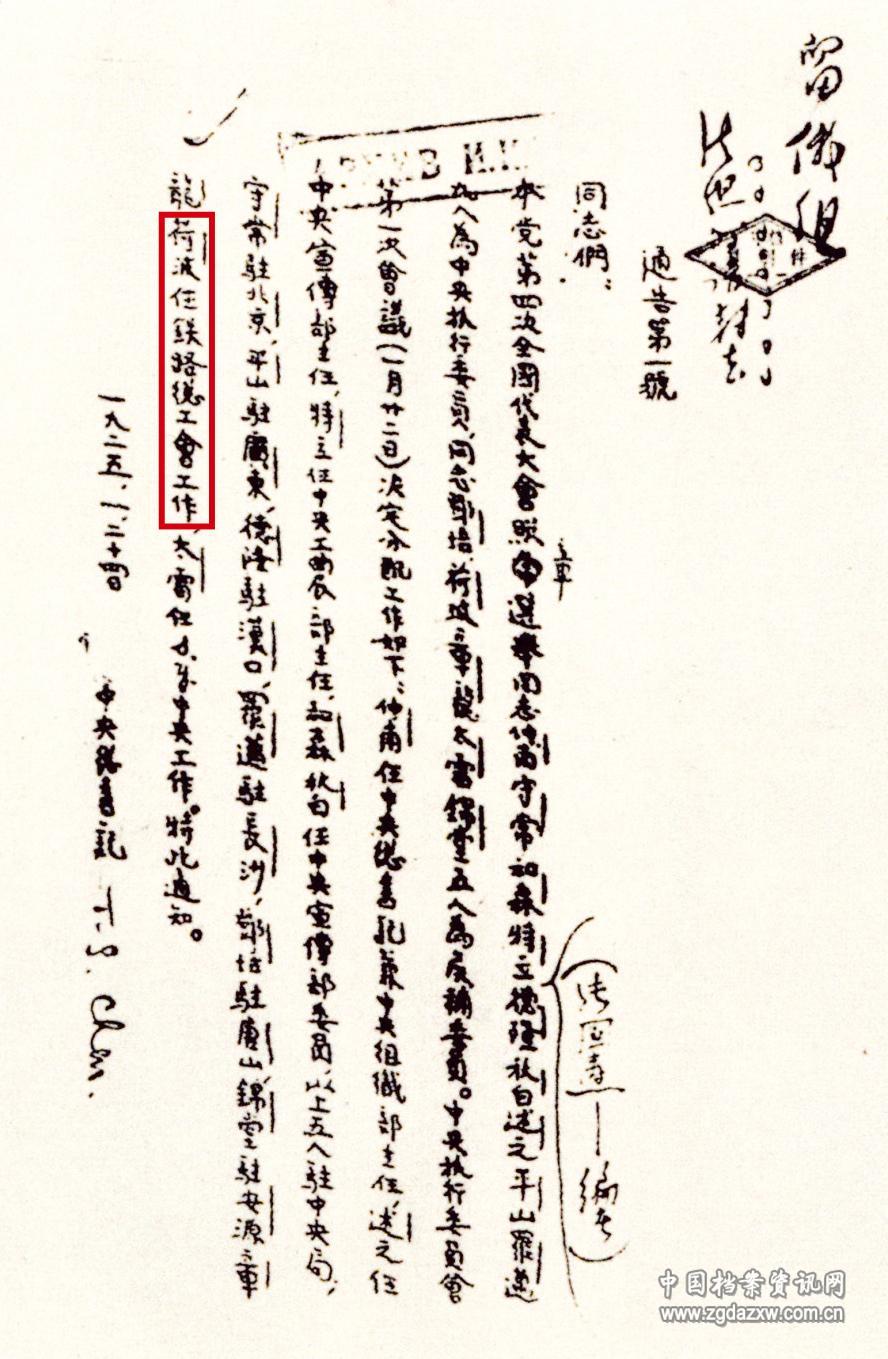 留做组
通告第一號
同志們：
本党第四次全國代表大會照章選舉同志仲甫守常和森特立德隆秋白述之平山羅邁
九人為中央执行委員，同志鄧培荷波章龍太雷錦堂五人為候補委員。中央执行委員會
第一次會議（一月廿二日）决定分配工作如下：仲甫任中央總書記兼中央组織部主任，述之任
中央宣傳部主任，特立任中央工農部主任，和森秋白任中央宣傳部委員，以上五人駐中央局，
守常駐北京，平山駐廣東，德隆駐漢口，羅邁駐長沙，鄧培駐唐山，錦堂駐安源，章
龍荷波任鉄路總工會工作，太雷任少年中央工作。特此通知。
一九二五、一、二十四日
中央總書記 T.S. Chen.
（張国燾—编者）
中国档案资讯网
www.zgdazxw.com.cn